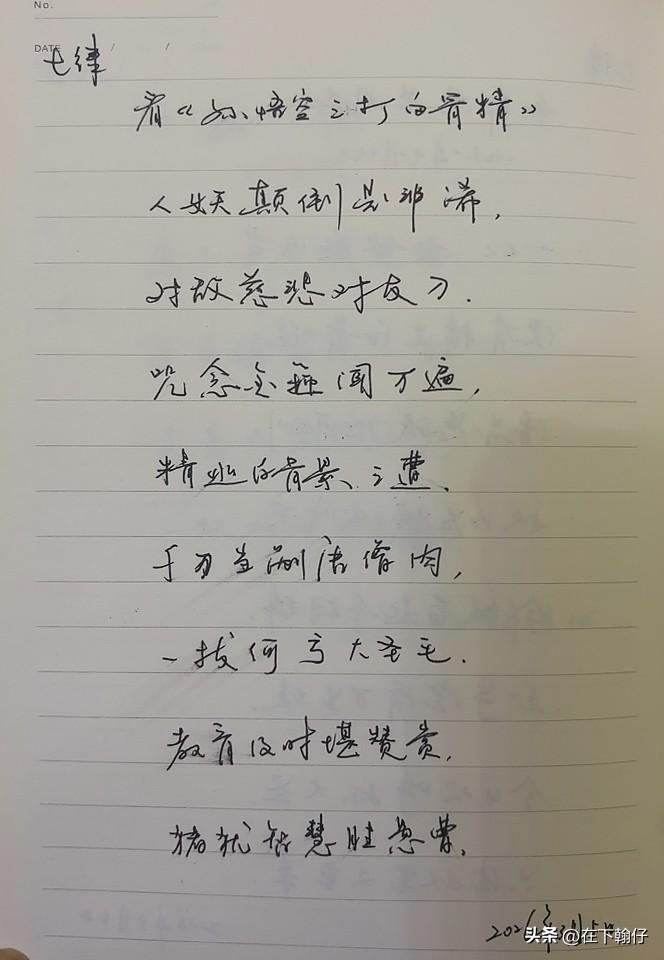 No.
DATE / /
七律
看《孙悟空三打白骨精》
人妖颠倒是非淆，
对敌慈悲对友刀.
咒念金箍闻万遍，
精逃白骨累三遭.
千刀当剐唐僧肉，
一拔何亏大圣毛.
教育及时堪赞赏，
猪犹智慧胜愚曹.
2021年
头条 @在下翰仔